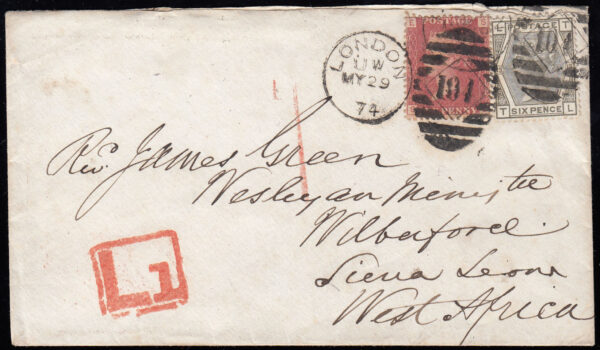 LONDON
UW
MY 29
74
E S
POSTAGE
PENNY
101
L POSTAGE T
T SIX PENCE L
101
Revd. James Green
Wesleyan Minister
Wilberforce
Sierra Leone
West Africa
L1